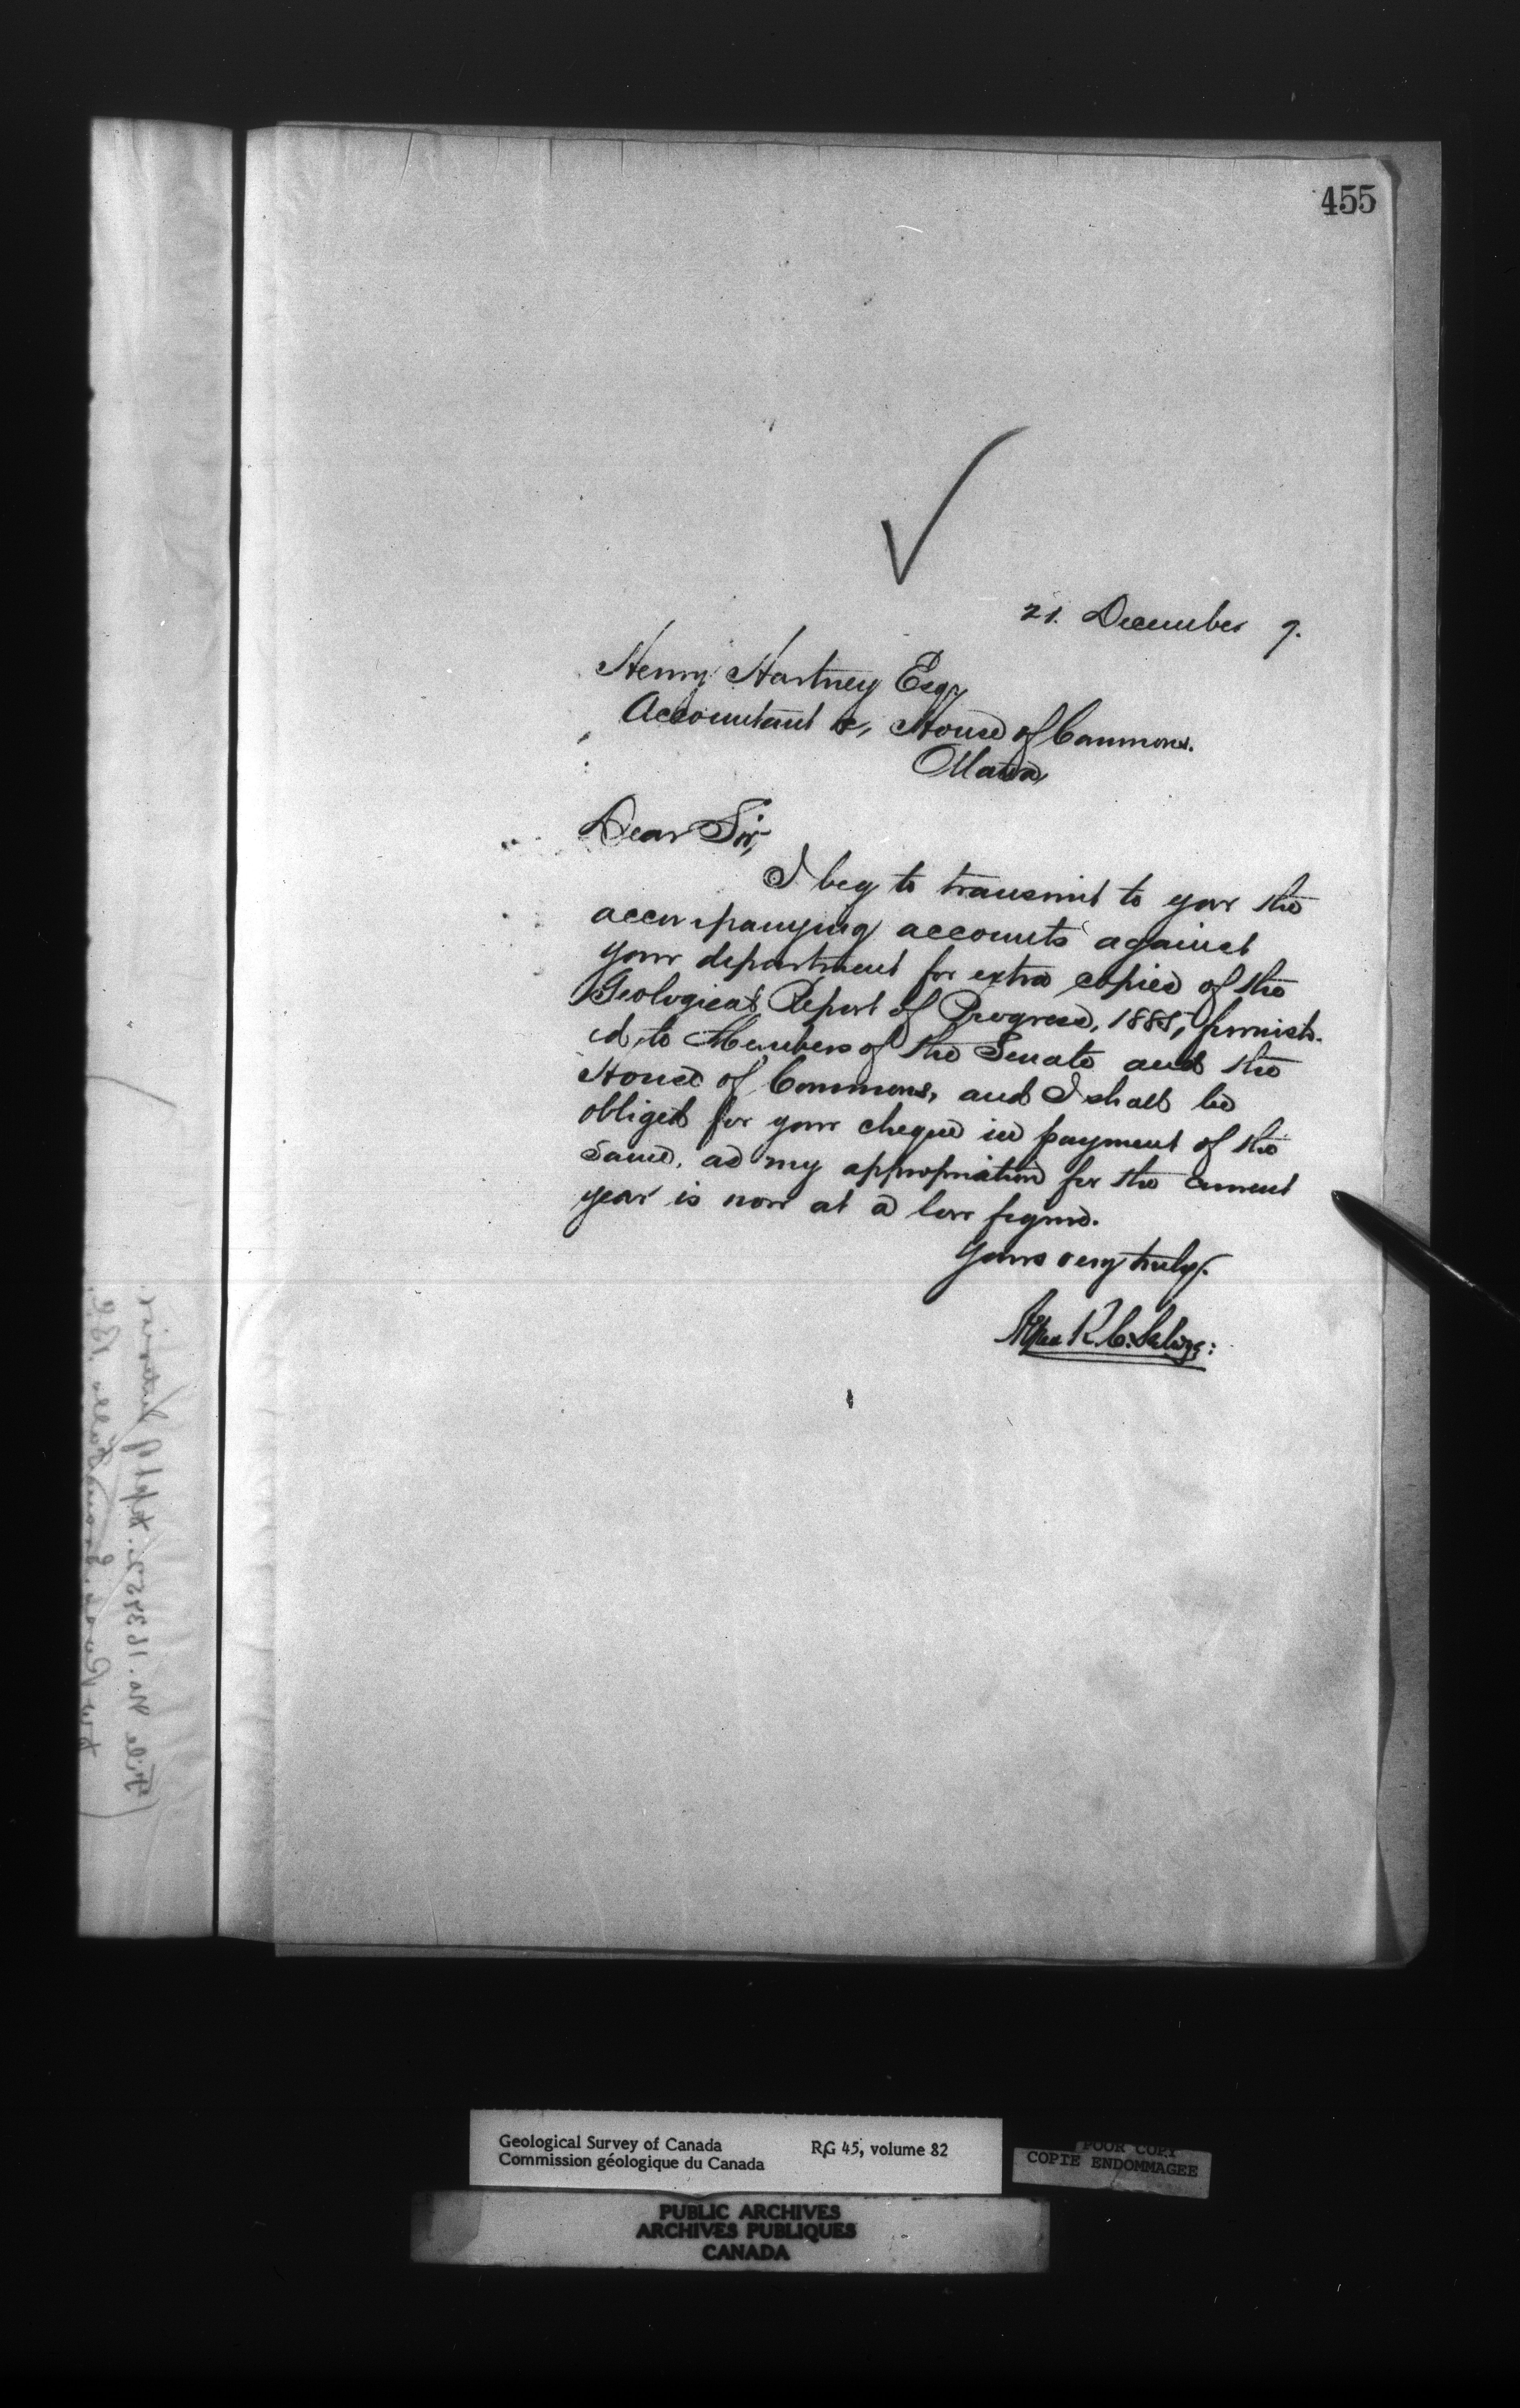 455
21. December 7.
Henry Hartney Esqr
Accountant &c, House of Commons.
Ottawa,
Dear Sir,
I beg to transmit to you the
accompanying accounts against
your department for extra copies of the
Geological Report of Progress, 1885, furnish-
ed to Members of the Senate and the
House of Commons, and I shall be
obliged for your cheque in payment of the
same, as my appropriation for the current
year is now at a low figure.
Yours very truly.
Alfred R. C. Selwyn:
File No. 163452.
Geological Survey of Canada
Commission géologique du Canada
RG 45, volume 82
POOR COPY
COPIE ENDOMMAGEE
PUBLIC ARCHIVES
ARCHIVES PUBLIQUES
CANADA